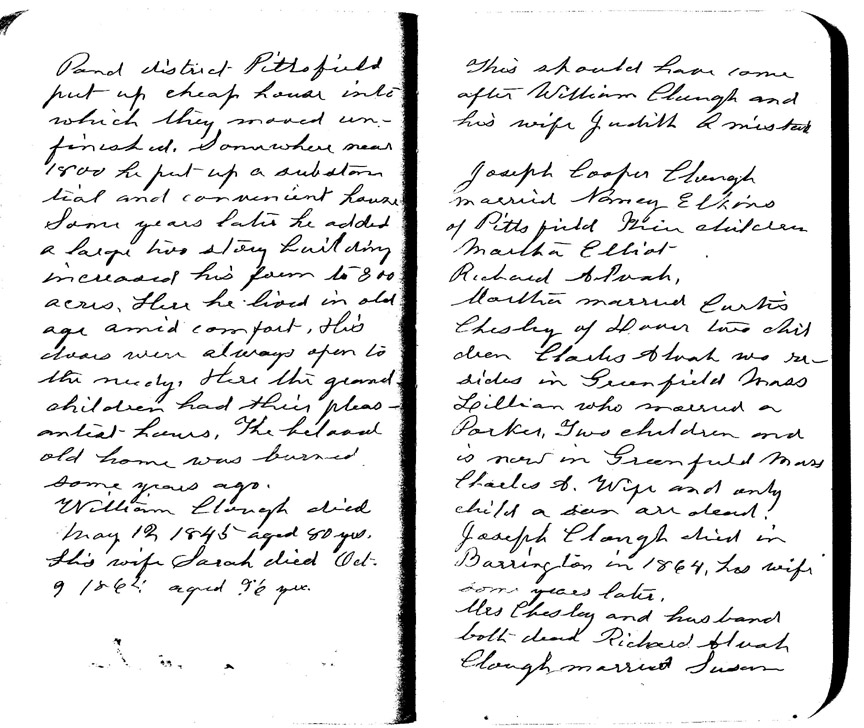 Pond district Pittsfield
put up cheap house into
which they moved un-
finished. Somewhere near
1800 he put up a substan
tial and convenient house
Some years later he added
a large two story building
increased his farm to 800
acres. Here he lived in old
age amid comfort. His
doors were always open to
the needy. Here the grand-
children had their pleas-
antest hours. The beloved
old home was burned
some years ago.
William Clough died
May 12 1845 aged 80 yrs.
His wife Sarah died Oct.
9 186 aged 96 yrs.
This should have come
after William Clough and
his wife Judith A mistake
Joseph Cooper Clough
married Nancy Elkins
of Pittsfield Their children
Martha Elliot
Richard Alvah,
Martha married Curtis
Chesley of Dover two chil
dren Charles Alvah who re-
sides in Greenfield Mass
Lillian who married a
Parker. Two children and
is now in Greenfield Mass
Charles A. Wife and only
child a son are dead.
Joseph Clough died in
Barrington in 1864, his wife
some years later.
Mrs Chesley and husband
both dead Richard Alvah
Clough married Susan